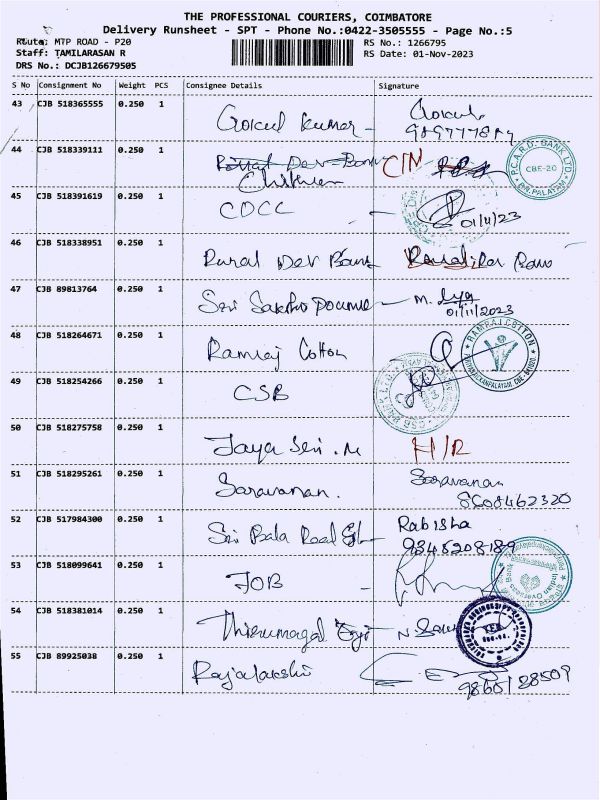 THE PROFESSIONAL COURIERS, COIMBATORE
Delivery Runsheet - SPT - Phone No.:0422-3505555 - Page No.:5
Route: MTP ROAD - P20
RS No.: 1266795
Staff: TAMILARASAN R
RS Date: 01-Nov-2023
DRS No.: DCJB126679505
S No Consignment No Weight PCS Consignee Details Signature
43 CJB 518365555 0.250 1 Gokul Kumar - Gokul
44 CJB 518339111 0.250 1 Rural Dev Bank C/N
P.C.A.R.D. BANK LTD.
CBE-20
45 CJB 518391619 0.250 1 CDCC - 01/11/23
46 CJB 518338951 0.250 1 Rural Dev Bank
47 CJB 89813764 0.250 1 Sri M.
01/11/2023
48 CJB 518264671 0.250 1 Ramraj Cotton
RAMRAJ COTTON
49 CJB 518254266 0.250 1 CSB
50 CJB 518275758 0.250 1 Jaya Sri . M H/R
51 CJB 518295261 0.250 1 Saravanan. Saravanan
8608462320
52 CJB 517984300 0.250 1 Sri Bala Real Rabisha
9345208189
53 CJB 518099641 0.250 1 IOB -
Indian Overseas Bank
54 CJB 518381014 0.250 1 Thirumagal
55 CJB 89925038 0.250 1 Rajalakshi
9860128509